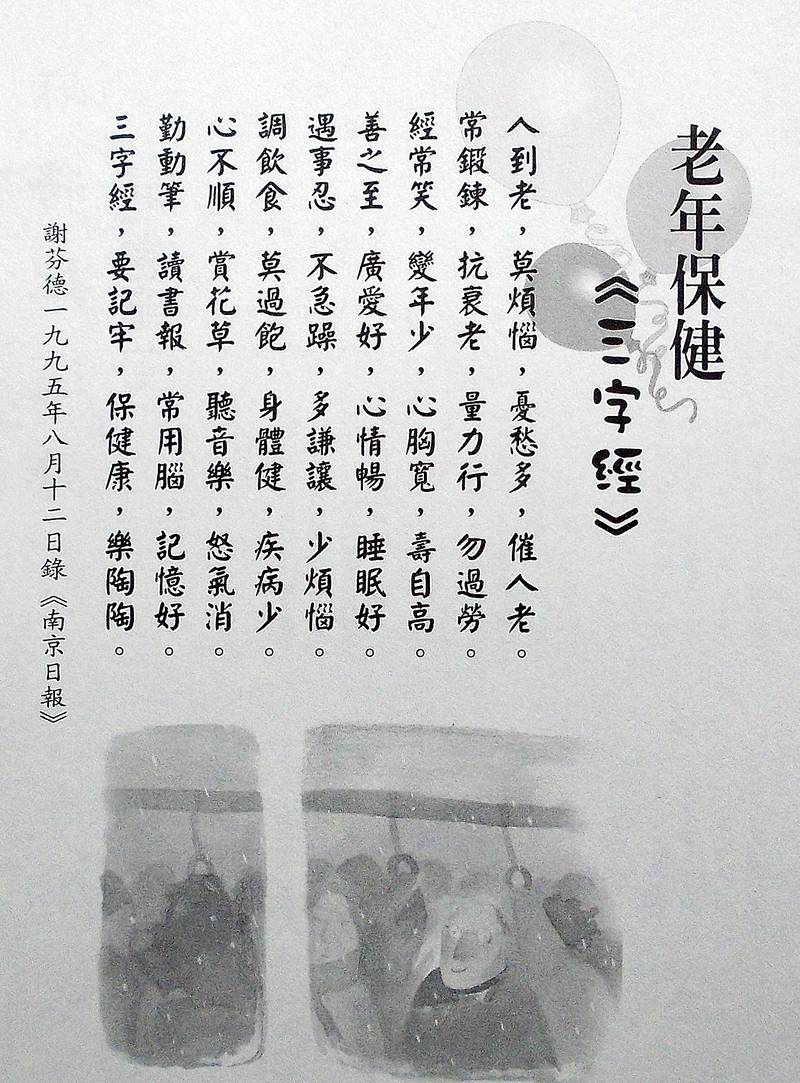 老年保健
《三字經》
人到老，莫煩惱，憂愁多，催人老。
常鍛鍊，抗衰老，量力行，勿過勞。
經常笑，變年少，心胸寬，壽自高。
善之至，廣愛好，心情暢，睡眠好。
遇事忍，不急躁，多謙讓，少煩惱。
調飲食，莫過飽，身體健，疾病少。
心不順，賞花草，聽音樂，怒氣消。
勤動筆，讀書報，常用腦，記憶好。
三字經，要記牢，保健康，樂陶陶。
謝芬德一九九五年八月十二日錄《南京日報》